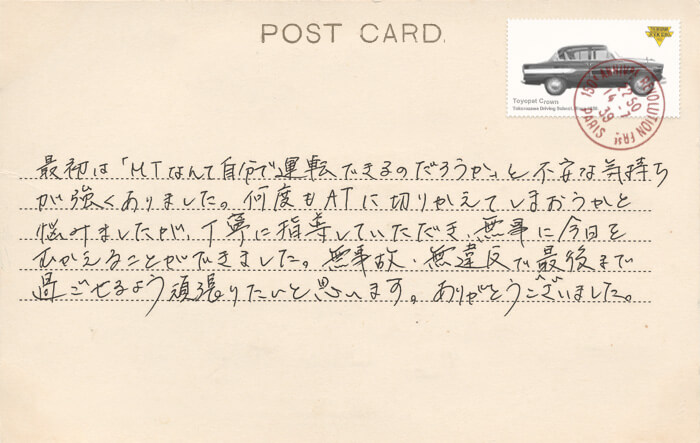 POST CARD
Toyopet Crown
最初は「MTなんて自分で運転できるのだろうか」と不安な気持ち
が強くありました。何度もATに切りかえてしまおうかと
悩みましたが、丁寧に指導していただき、無事に今日を
むかえることができました。無事故・無違反で最後まで
過ごせるよう頑張りたいと思います。ありがとうございました。